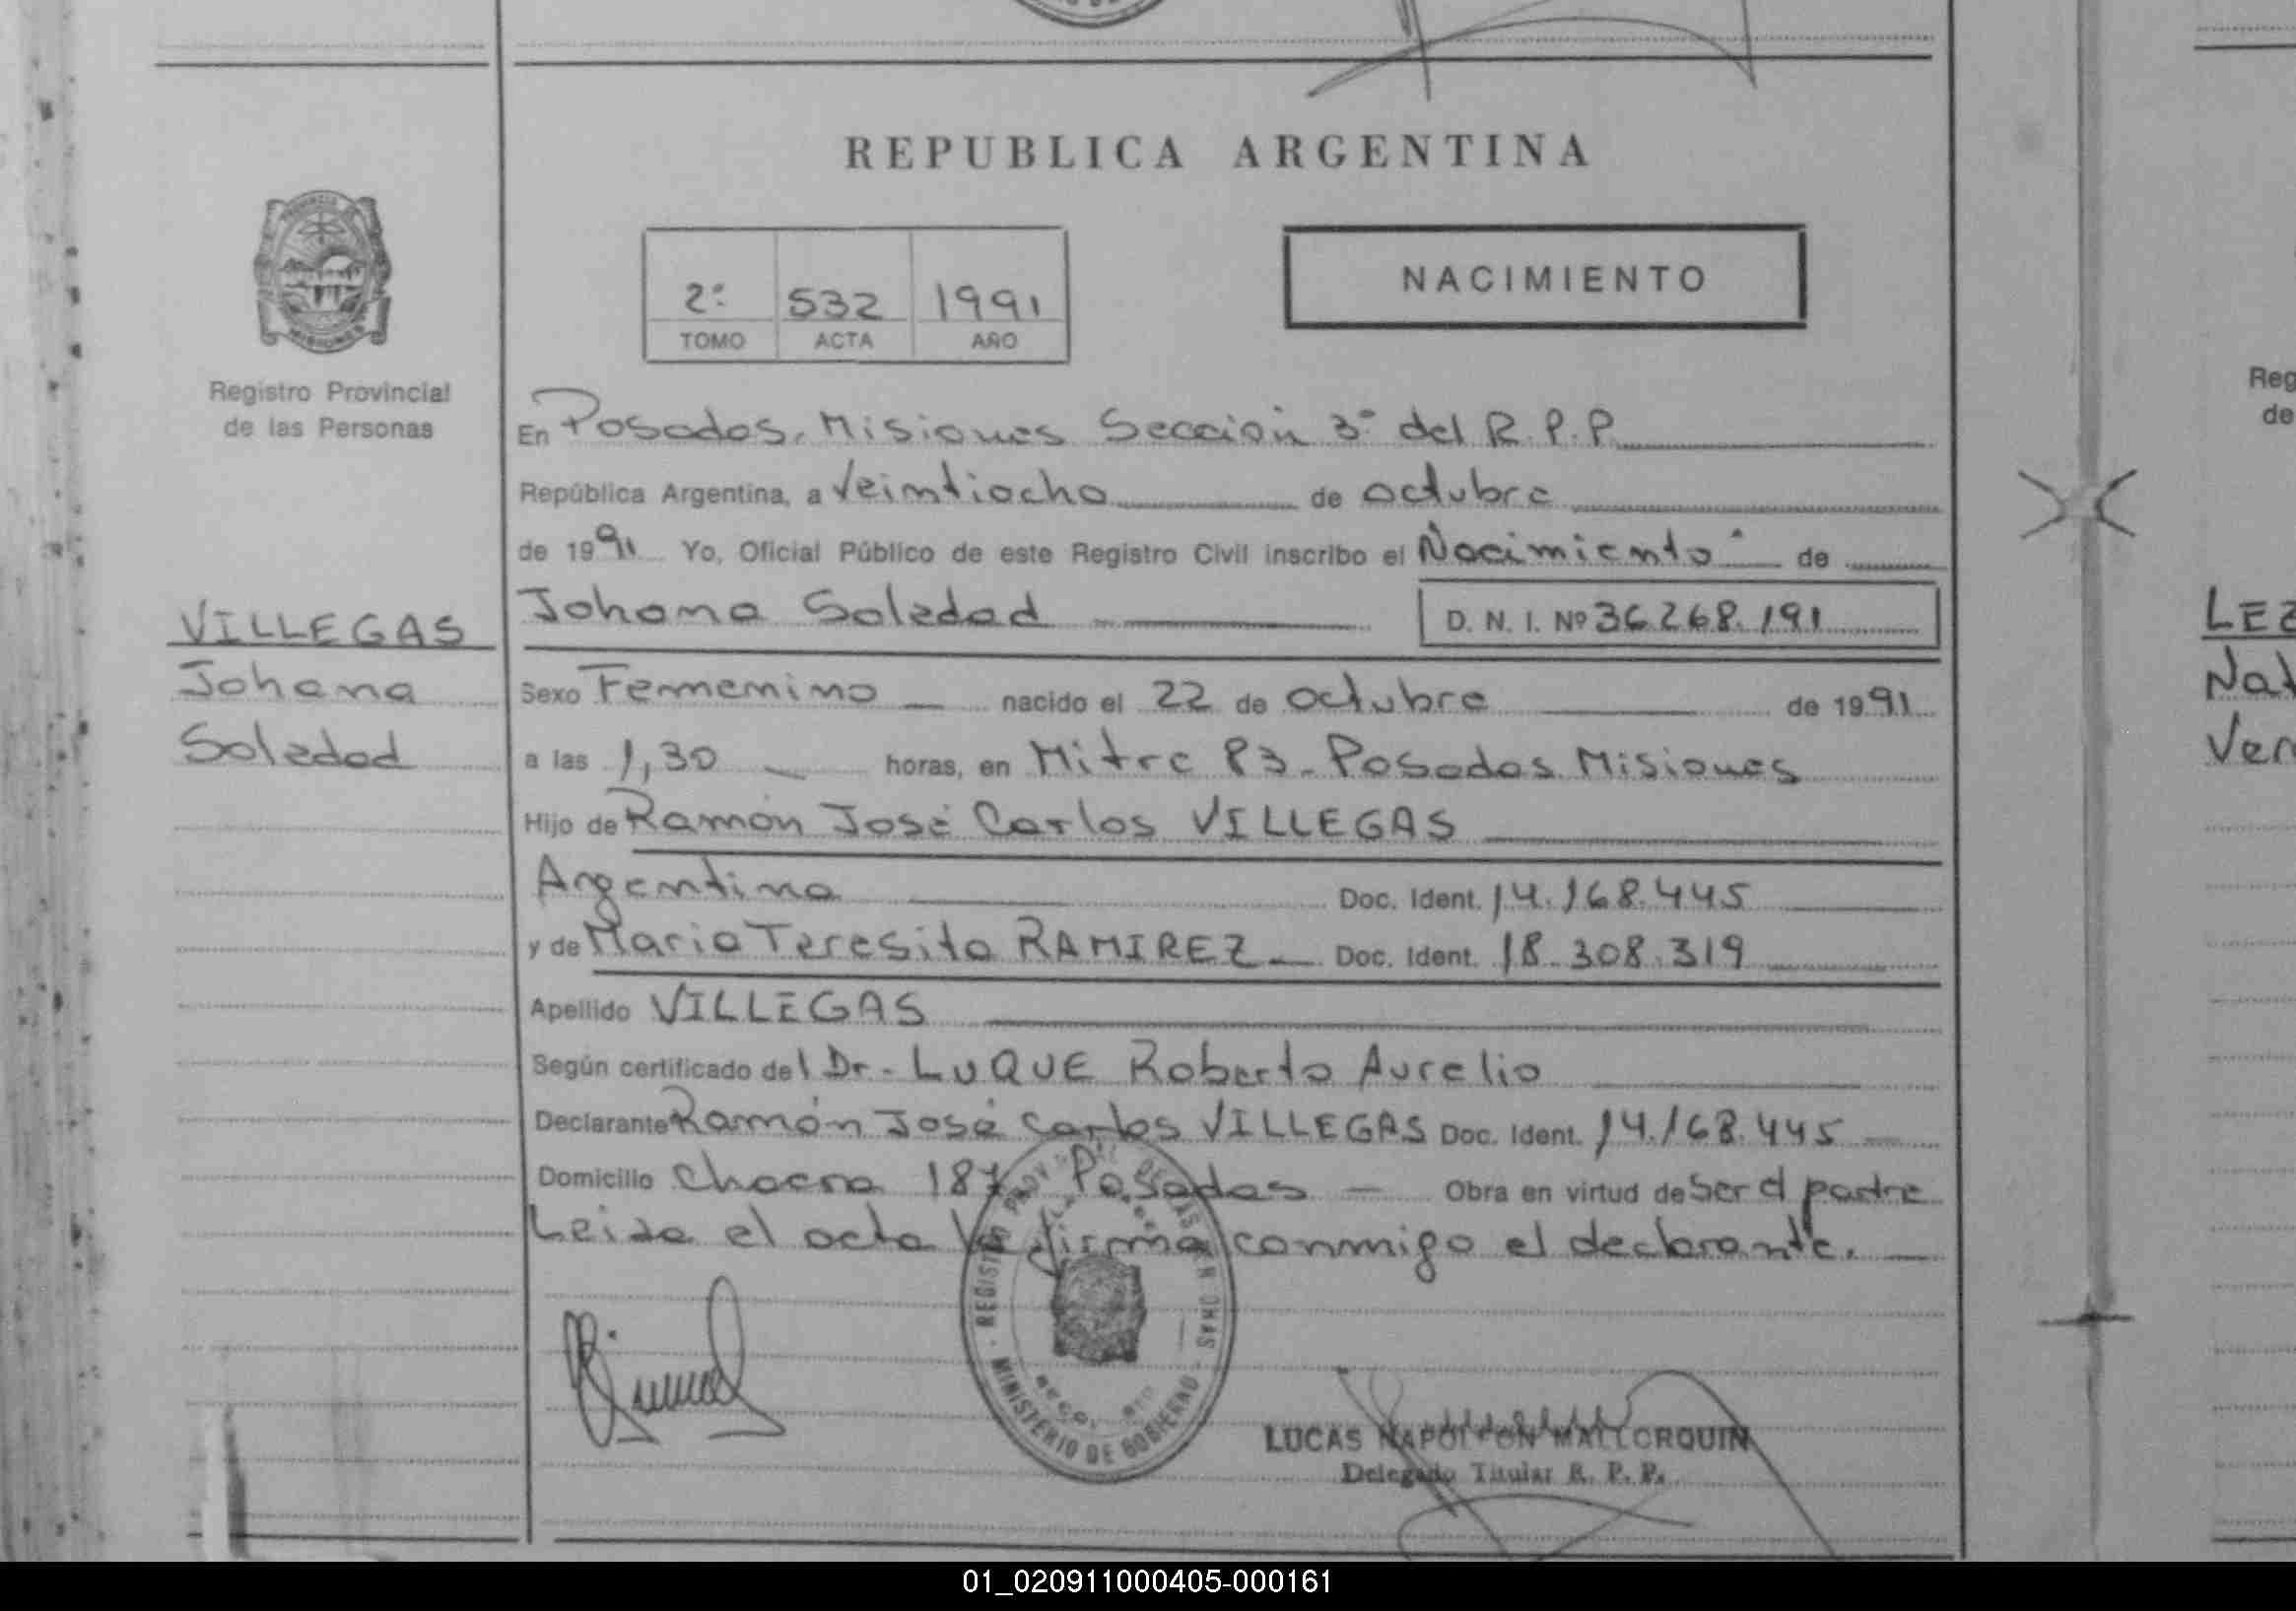 REPUBLICA ARGENTINA
2º 532 1991
TOMO ACTA AÑO
NACIMIENTO
Registro Provincial
de las Personas
VILLEGAS
Johana
Soledad
En Posadas, Misiones Sección 3º del R.P.P.
República Argentina, a Veintiocho de octubre
de 1991 Yo, Oficial Público de este Registro Civil inscribo el Nacimiento de
Johana Soledad D. N. I. Nº 36.268.191
Sexo Femenino nacido el 22 de octubre de 1991
a las 1,30 horas, en Mitre 83 - Posadas Misiones
Hijo de Ramón José Carlos VILLEGAS
Argentina Doc. Ident. 14.168.445
y de Maria Teresita RAMIREZ Doc. Ident. 18.308.319
Apellido VILLEGAS
Según certificado del Dr. LUQUE Roberto Aurelio
Declarante Ramón José Carlos VILLEGAS Doc. Ident. 14.168.445
Domicilio Chacra 187 Posadas - Obra en virtud de ser el padre
Leida el acta la firma conmigo el declarante.
MINISTERIO DE GOBIERNO
LUCAS NAPOLEON MALLORQUIN
Delegado Titular R. P. P.
Reg
de
LEZ
Nat
Ver
01_020911000405-000161